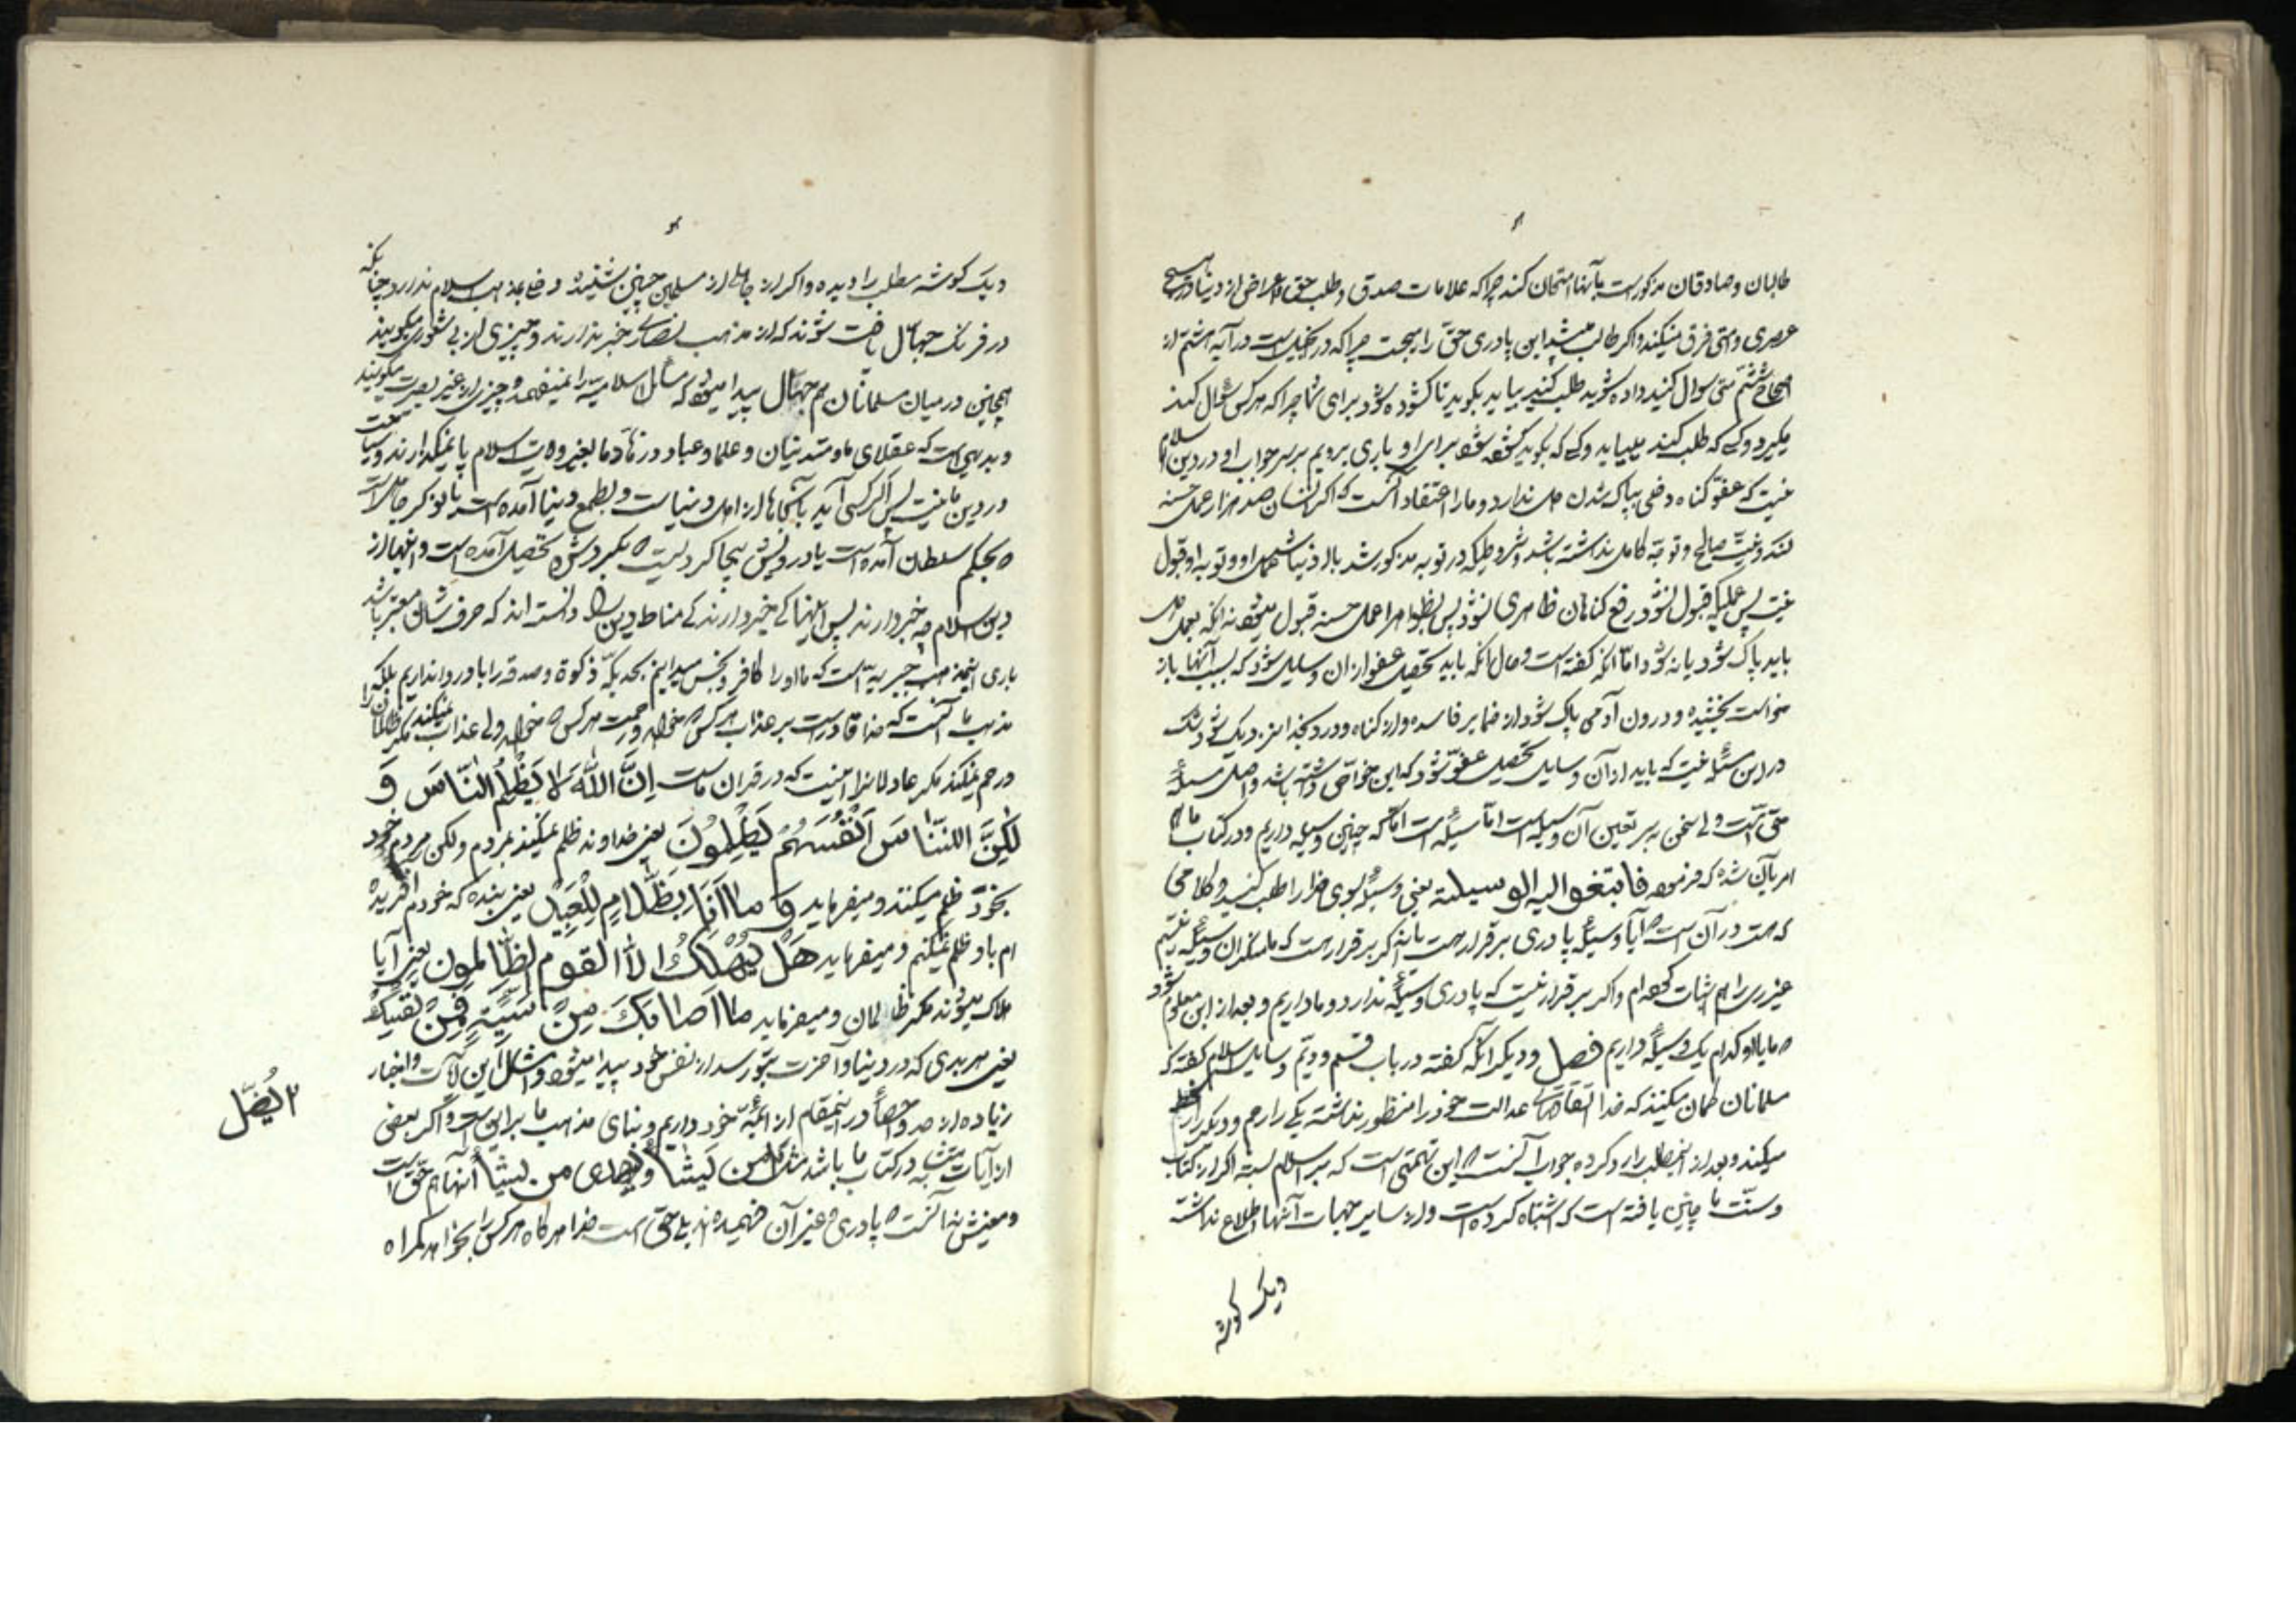 طالبان و صادقان مذکور است بآنها امتحان کند چرا که علامات صدق و طلب حق و اعراض از دنیا در هیچ
عصری و متی فرق نمیکند و اگر طالب میشد این پادری حق را میجست چرا که در انجیل است در آیه هشتم از
اصحاح هفتم متی سوال کنید داده شوید طلب کنید بیابید بکوبید تا کشوده شود برای شما چرا که هر کس سوال کند
میکیرد و کسی که طلب کند میابد و کسی که بکوبد کشوده شود برای او باری برویم بر سر جواب او در دین اسلام
نیست که عفو کناه و دلی پاک شدن ندارد و ما را اعتقاد آنست که اگر انسان صد هزار عمل حسنه
کند و نیت صالح و توبه کامل نداشته باشد و شروطیکه در توبه مذکور شد عمل او و توبه او قبول
نیست پس عملیکه قبول نشود رفع کناهان ظاهری نشود پس عمل حسنه قبول میشود نه آنکه
باید پاک شود یا نه شود اما آنچه کفته است و حال آنکه باید تحصیل عفو از آن وسایل شود که بسبب آنها باز
خواست بخشیده و درون آدمی پاک شود از ضمایر فاسده و از کناه و درد بخدا نزدیک شود شک
در این مسئله نیست که باید از آن وسایل تحصیل عفو شود که این خواص داشته باشد و اصل مسئله
حق است ولی سخن بر سر تعین آن وسیله است اما مسئله است اما که چنین وسیله داریم و در کتاب ما
امر بآن شده که فرموده فابتغوا الیه الوسیلة یعنی وسیله بسوی خدا را طلب کنید و کلامی
که هست در آن است آیا وسیله پادری بر قرار هست یا نه اگر بر قرار هست که ما منکر آن وسیله نیستیم
عیسی را هم اثبات کرده ام و اگر بر قرار نیست که پادری وسیله ندارد و ما داریم و بعد از این معلوم شود
ما یا او کدام یک وسیله داریم فصل و دیکر آنکه کفته در باب قسم دویم وسایل اسلام کفته که
مسلمانان کمان میکنند که خدا عدالت خود را منظور نداشته یکی را رحم و دیکر را
میکند و بعد از این مطلب را رد کرده جواب آنست این تهمتی است که بر اسلام بسته اگر از کتاب
و سنت ما چنین یافته است که اشتباه کرده است و از سایر جهات آنها اطلاع نداشته
دیک کوشه
و یک کوشه مطلب را دیده و اگر از جاهلی از مسلمین چنین شنیده دخلی بمذهب اسلام ندارد چنانکه
در فرنک جهال یافت شوند که از مذهب نصاری خبر ندارند و چیزی از بی شعوری میکویند
همچنین در میان مسلمانان هم جهال پیدا میشود که مسائل اسلامیه را نمیفهمد و چیزی از غیر بصیرت میکویند
و بدیهی است که عقلای ما و متدینان و علما و عباد و زهاد ما بغیر ولایت اسلام پا نمیکذارند و سیاحت
در دین ما نیست پس اگر کسی آید بآنجاها از اهل دنیا است و بطمع دنیا آمده است یا نوکر جاهل است
بحکم سلطان آمده است یا درویش بیجا کرد و اینها از
دین اسلام چه خبر دارند پس اینها کی خبر دارند کی مناط دین دانسته اند که حرف شان معتبر باشد
باری این مذهب جبریه است که ما او را کافر و نجس میدانیم بحدیکه ذکوة و صدقه را باو روا نداریم بلکه
مذهب ما آنست که خدا قادر است بر عذاب هر کس خواهد و رحمت هر کس خواهد ولی عذاب نمیکند مکر ظالمان را
و رحم نمیکند مکر عادلانرا آیا نیست که در قرآن ماست إِنَّ اللَّهَ لا یَظْلِمُ النّاسَ وَ
لٰکِنَّ النّاسَ اَنْفُسَهُمْ یَظْلِمُونَ یعنی خداوند ظلم نمیکند بمردم ولکن مردم خود
بخود ظلم میکنند و میفرماید وَ ما اَنَا بِظَلّامٍ لِلْعَبیدِ یعنی بنده که خودم آفریده
ام باو ظلم نمیکنم و میفرماید هَلْ یُهْلَکُ الاَّ القوم الظّالِمون یعنی آیا
هلاک میشوند مکر ظالمان و میفرماید ما اَصابَکَ مِنْ سَیِّئَةٍ فَمِنْ نَفْسِکَ
یعنی هر بدی که در دنیا و آخرت بتو رسد از نفس خود پیدا میشود و امثال این آیات و اخبار
زیاده از حد و احصا در اینمقام از ائمه خود داریم و بنای مذهب ما بر این است و اگر بعضی
از آیات متشابه در کتاب ما باشد مثل من یشاءُ و یهدی من یشاءُ آنها هم حق است
و معنیش نه آنست پادری و غیر آن فهمیده اند بلی حق است خدا هر کاه هر کس را بخواهد کمراه
۲ یُضِلّ